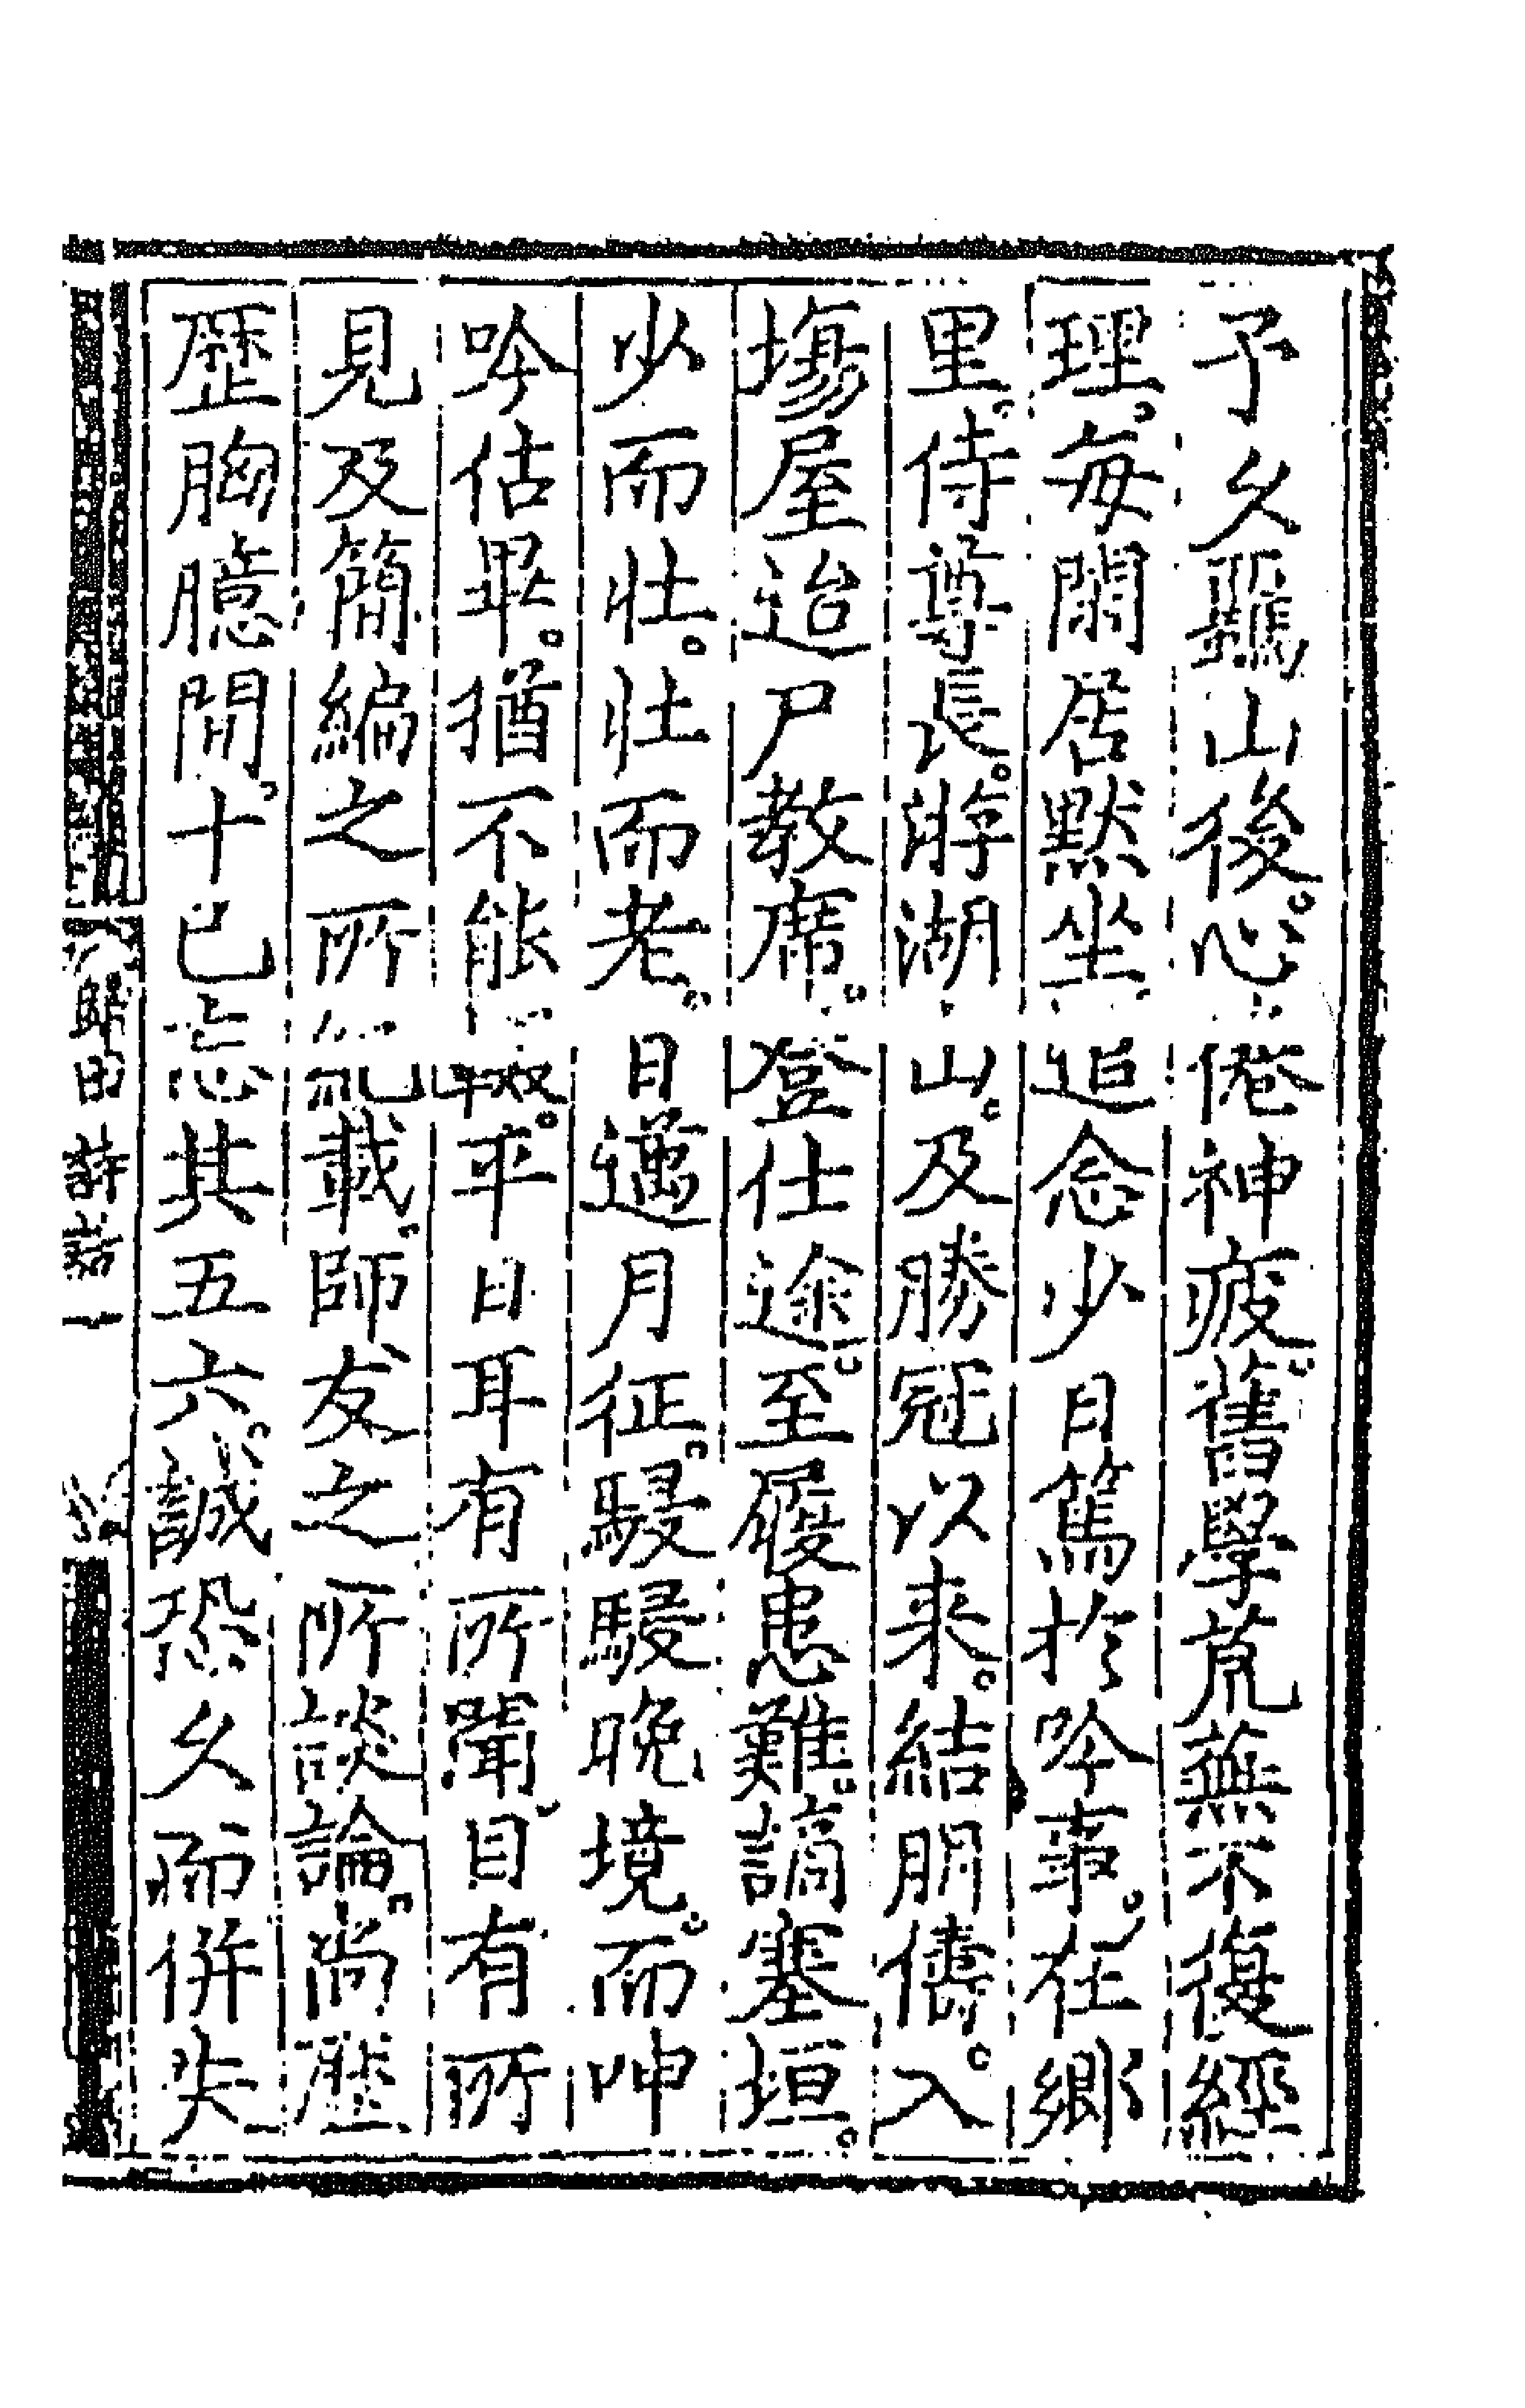 予久羈山後。心倦神疲。舊學荒蕪不復經
理。每閑居默坐。追念少日篤於吟事。在鄉
里。侍尊長。游湖山。及勝冠以来。結朋儔。入
塲屋迨尸教席。登仕途。至履患難。謫塞垣。
少而壮。壮而老。日邁月征。駸駸晚境。而呻
吟佔畢。猶不能輟。平日耳有所聞。目有所
見及簡編之所紀載。師友之所談論。尚歷
歷胸臆間。十已忘其五六。誠恐久而併失
歸田詩話一